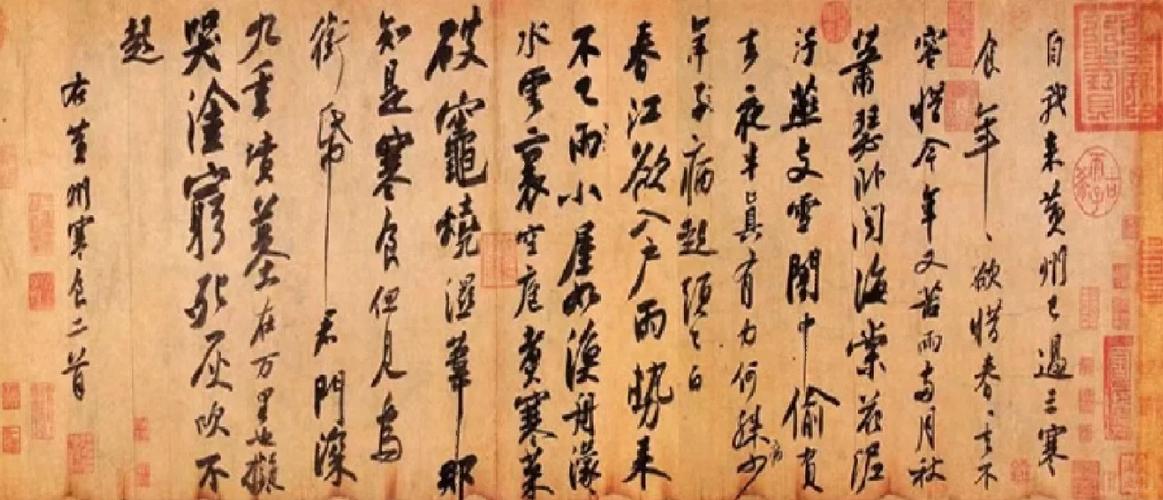 自我來黃州已過三寒
食年〻欲惜春〻去不
容惜今年又苦雨兩月秋
蕭瑟臥聞海棠花泥
汙燕支雪闇中偷負
去夜半真有力何殊少
年子病起須已白
春江欲入戶雨勢來
不已雨小屋如漁舟濛
水雲裏空庖煮寒菜
破竈燒濕葦那
知是寒食但見烏
銜帋君門深
九重墳墓在万里也擬
哭塗窮死灰吹不
起
右黃州寒食二首